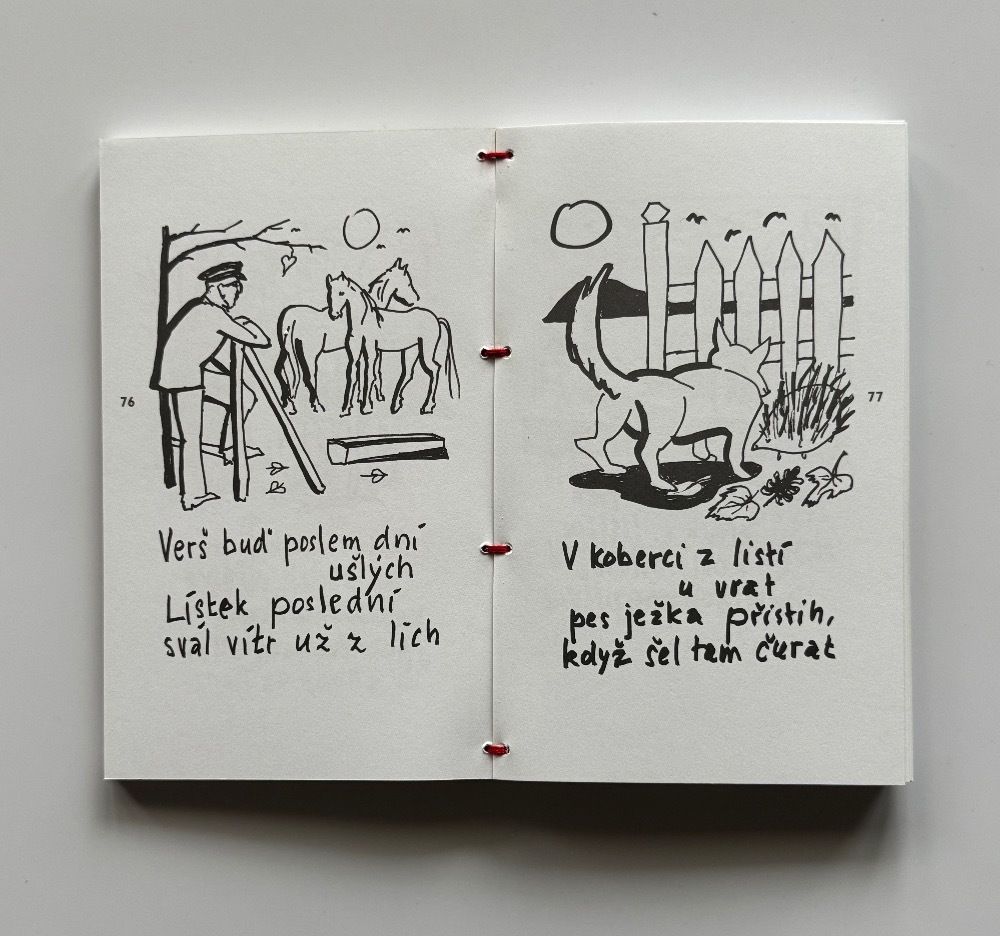 76
Verš buď poslem dní
ušlých
Lístek poslední
svál vítr už z lích
77
V koberci z listí
u vrat
pes ježka přistih,
když šel tam čurat